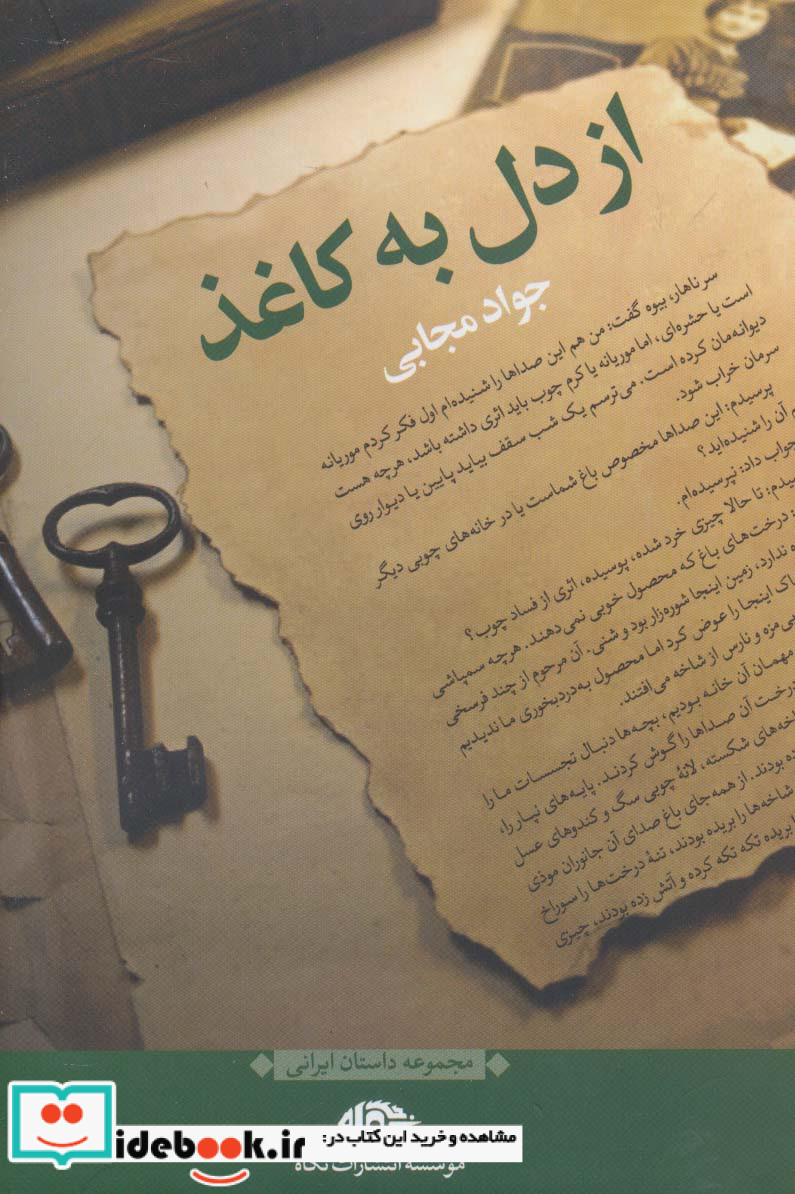 از دل به کاغذ
جواد مجابی
سر ناهار، بیوه گفت: من هم این صداها را شنیده‌ام اول فکر کردم موریانه
است یا حشره‌ای، اما موریانه یا کرم چوب باید اثری داشته باشد، هرچه هست
دیوانه‌مان کرده است. می‌ترسم یک شب سقف بیاید پایین یا دیوار روی
سرمان خراب شود.
پرسیدم: این صداها مخصوص باغ شماست یا در خانه‌های چوبی دیگر
آن را شنیده‌اید؟
جواب داد: نپرسیده‌ام.
تا حالا چیزی خرد شده، پوسیده، اثری از فساد چوب؟
درخت‌های باغ که محصول خوبی نمی‌دهند. هرچه سمپاشی
ندارد، زمین اینجا شوره‌زار بود و شنی. آن مرحوم از چند فرسخی
اینجا را عوض کرد اما محصول به‌دردبخوری ما ندیدیم
مزه و نارس از شاخه می‌افتند.
مهمان آن خانه بودیم، بچه‌ها دنبال تجسسات ما را
درخت آن صداها را گوش کردند. پایه‌های نپار را،
شکسته، لانهٔ چوبی سگ و کندوهای عسل
بودند. از همه جای باغ صدای آن جانوران موذی
شاخه‌ها را بریده بودند، تنهٔ درخت‌ها را سوراخ
بریده تکه تکه کرده و آتش زده بودند، چیزی
مجموعه داستان ایرانی
مشاهده و خرید این کتاب در:
idebook.ir
موسسه انتشارات نگاه